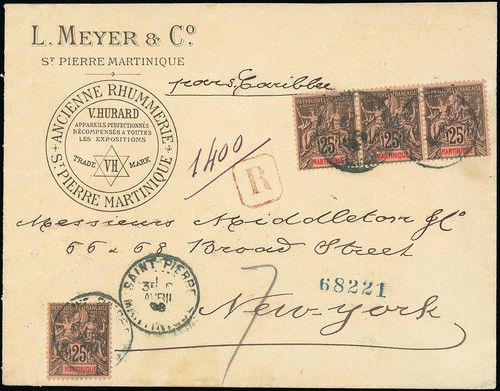 L. MEYER & Cº.
ST PIERRE MARTINIQUE
pars. Caribbee
ANCIENNE RHUMMERIE
V. HURARD
APPAREILS PERFECTIONNÉS
RÉCOMPENSÉS A TOUTES
LES EXPOSITIONS
TRADE MARK
VH
ST PIERRE MARTINIQUE
1400
R
RÉPUBLIQUE FRANÇAISE
25
MARTINIQUE
RÉPUBLIQUE FRANÇAISE
25
MARTINIQUE
RÉPUBLIQUE FRANÇAISE
25
MARTINIQUE
Messieurs Middleton & Co
66 & 68 Broad Street
SAINT-PIERRE
AVRIL
98
MARTINIQUE
7
68221
New-York
RÉPUBLIQUE FRANÇAISE
25
MARTINIQUE